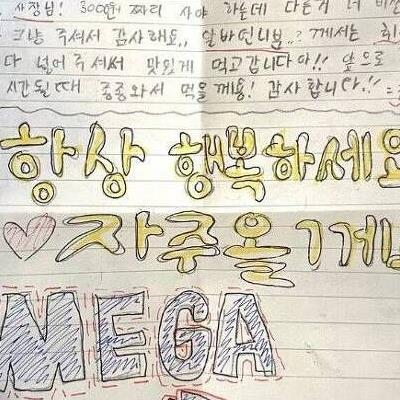 사장님! 3000원 짜리 사야 하는데 다른거 더 비싼
그냥 주셔서 감사해요,, 알바언니분..? 께서는 휘
다 넣어주셔서 맛있게 먹고갑니다아!! 앞으로
시간될때 종종와서 먹을께용! 감사합니다!!
항상 행복하세요
자주올게
MEGA